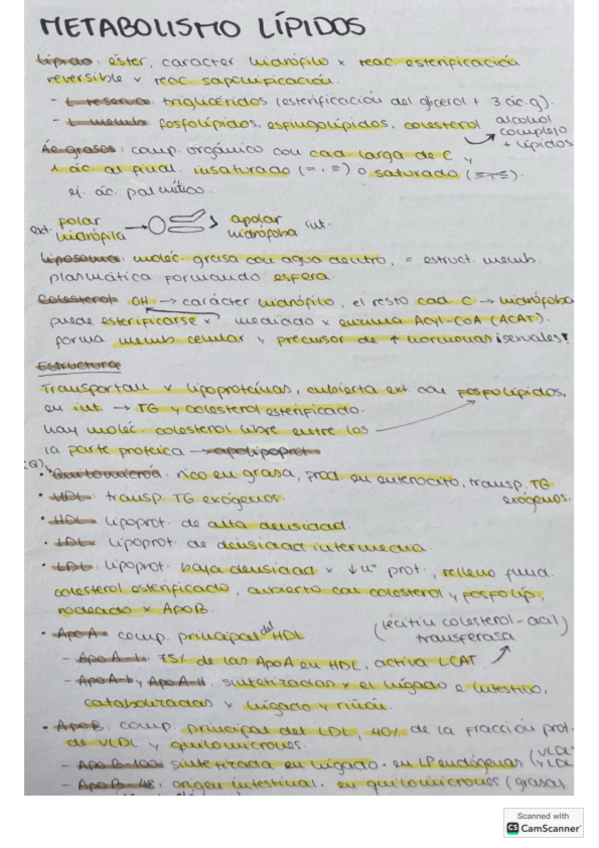 METABOLISMO LÍPIDOS
Lípido: éster, carácter hidrófilo x reac. esterificación
reversible y reac. saponificación.
- L reserva: triglicéridos (esterificación del glicerol + 3 ác. g).
- L memb: fosfolípidos, esfingolípidos, colesterol
alcohol
complejo
+ lípidos
Ác grasos: comp. orgánico con cad larga de C y
1 ác. al final. insaturado (=, ≡) o saturado
ej. ác. palmítico.
ext. polar
hidrófila
apolar
hidrófoba
int.
Liposoma: moléc. grasa con agua dentro, = estruct. memb.
plasmática formando esfera.
Colesterol: OH → carácter hidrófilo, el resto cad C → hidrófoba
puede esterificarse mediado x enzima Acyl-CoA (ACAT).
forma memb celular y precursor de ↑ hormonas ¡sexuales!
Estructura
Transportan x lipoproteínas, cubierta ext. con fosfolípidos,
en int → TG y colesterol esterificado.
hay moléc. colesterol libre entre los
la parte proteica → apolipoprot
(Q) • Quilomicrón: rico en grasa, prod en enterocito, transp. TG
exógenos.
• VLDL: transp. TG exógenos.
• HDL: lipoprot. de alta densidad.
• IDL: lipoprot. de densidad intermedia.
• LDL: lipoprot. baja densidad x ↓ nº prot., relleno fund.
colesterol esterificado, cubierto con colesterol y fosfolíp,
rodeado x ApoB.
• Apo A: comp. principal del HDL
(lecitin colesterol-acil)
transferasa
- Apo A-I: 75% de las ApoA en HDL, activa LCAT
- Apo A-I y Apo A-II: sintetizadas x el hígado e intestino,
catabolizadas x hígado y riñón.
• Apo B: comp. principal del LDL, 40% de la fracción prot.
de VLDL y quilomicrones.
- Apo B-100: sintetizada en hígado. en LP endógenas (VLDL
- Apo B-48: origen intestinal. en quilomicrones (grasas)
Scanned with
CS CamScanner